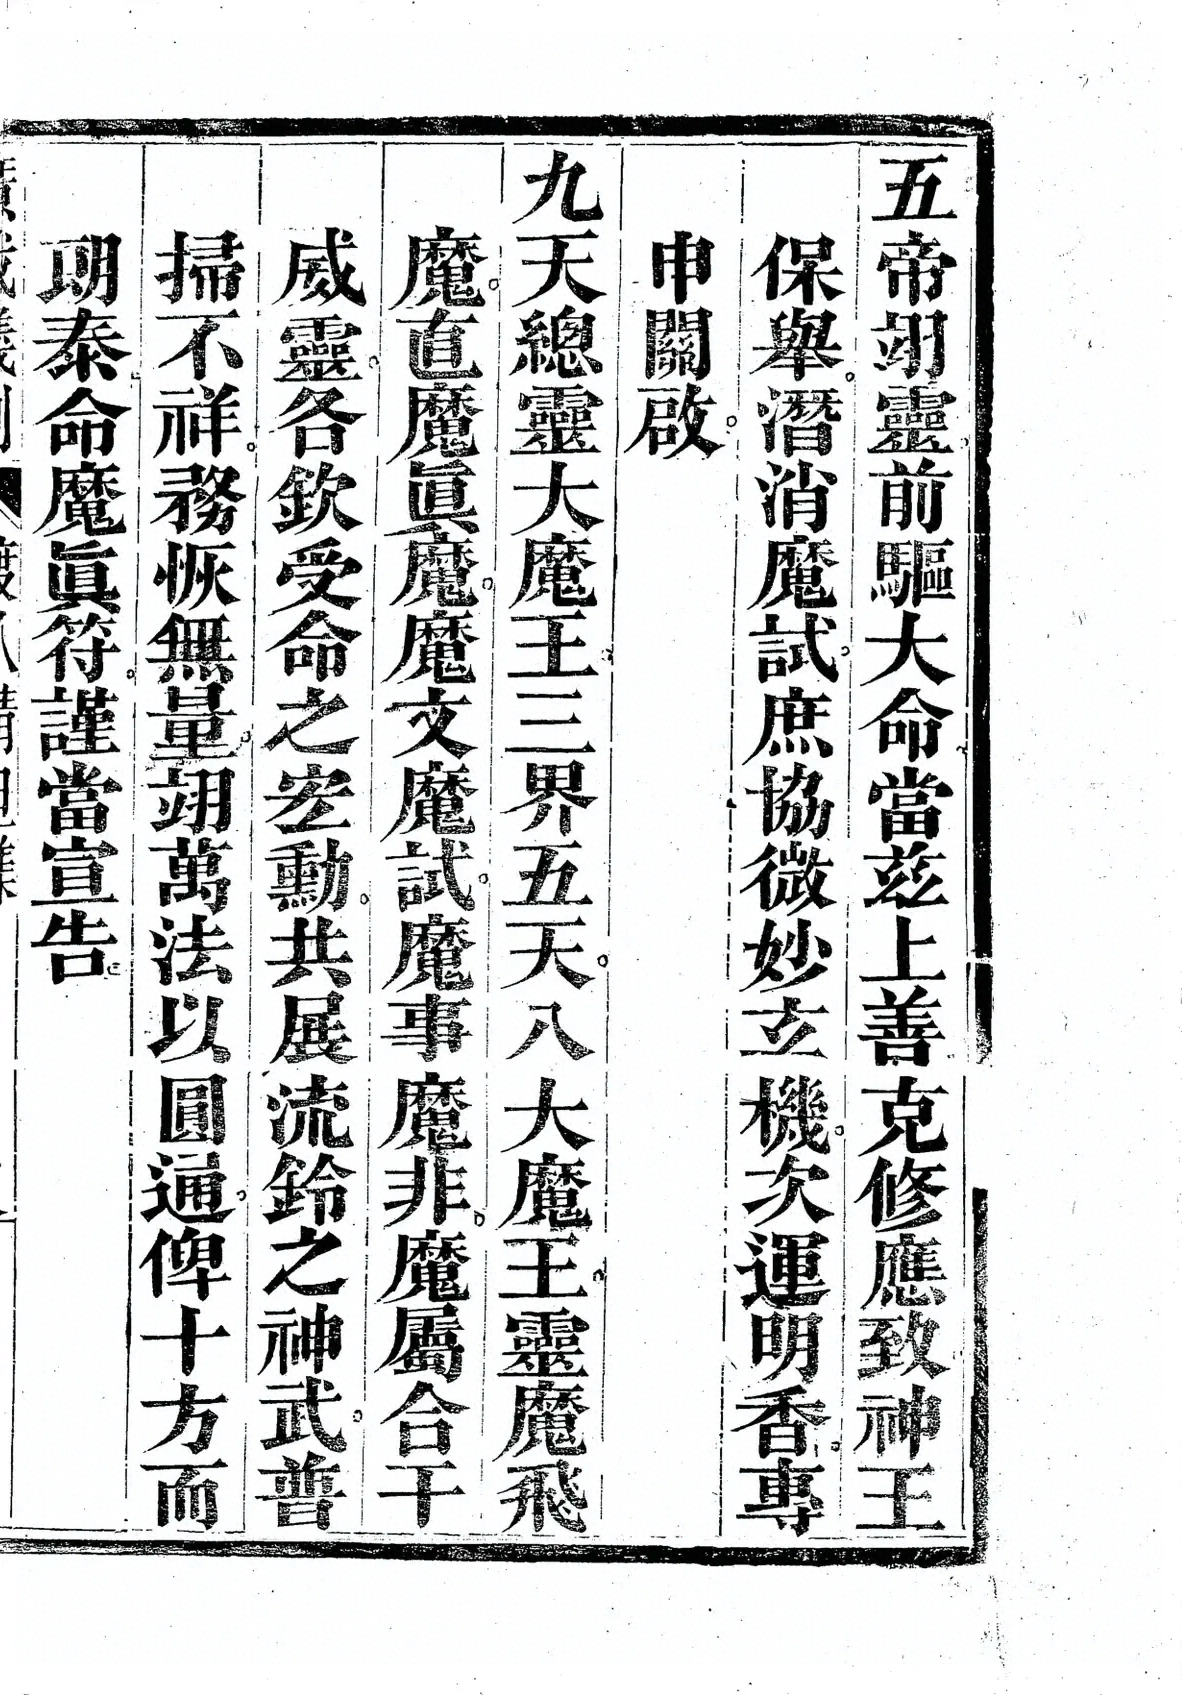 五帝翊靈。前驅大命。當茲上善克修應致神王
保舉。潛消魔試。庶協微妙立機。次運明香。專
申關啟。
九天總靈大魔王。三界五天。八大魔王。靈魔飛
魔。直魔眞魔。魔文魔試。魔事魔非。魔屬合干
威靈。各欽受命之宏勳。共展流鈴之神武。普
掃不祥。務恢無量。翊萬法以圓通。俾十方而
朗泰。命魔眞符。謹當宣告。